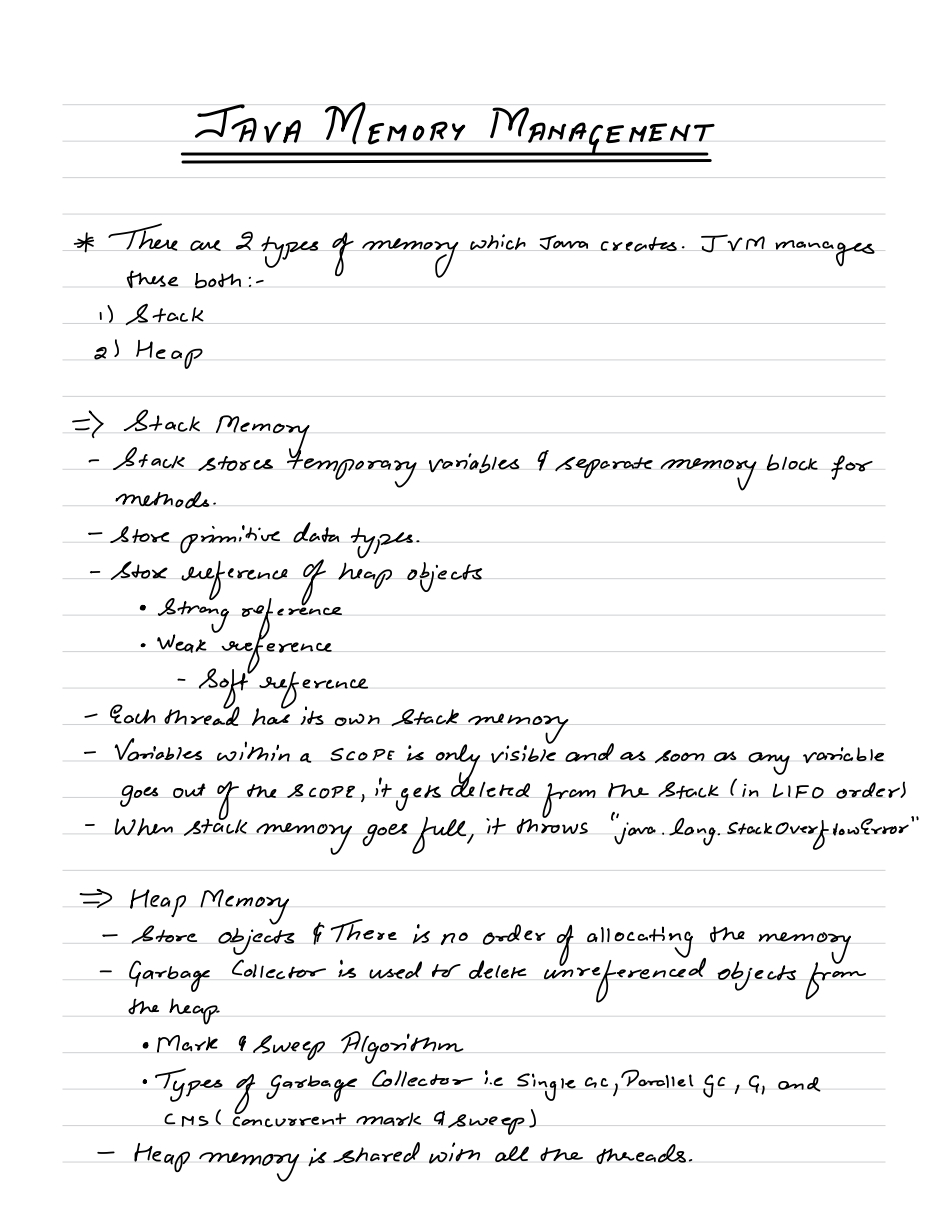 JAVA MEMORY MANAGEMENT
* There are 2 types of memory which Java creates. JVM manages
these both:-
1) Stack
2) Heap
=> Stack Memory
- Stack stores temporary variables & separate memory block for
methods.
- Store primitive data types.
- Store reference of heap objects
• Strong reference
• Weak reference
- Soft reference
- Each thread has its own Stack memory
- Variables within a SCOPE is only visible and as soon as any variable
goes out of the SCOPE, it gets deleted from the Stack (in LIFO order)
- When stack memory goes full, it throws "java.lang.StackOverflowError"
=> Heap Memory
- Store Objects & There is no order of allocating the memory
- Garbage Collector is used to delete unreferenced objects from
the heap.
• Mark & Sweep Algorithm
• Types of Garbage Collector i.e Single GC, Parallel GC, G1 and
CMS (concurrent mark & sweep)
- Heap memory is shared with all the threads.